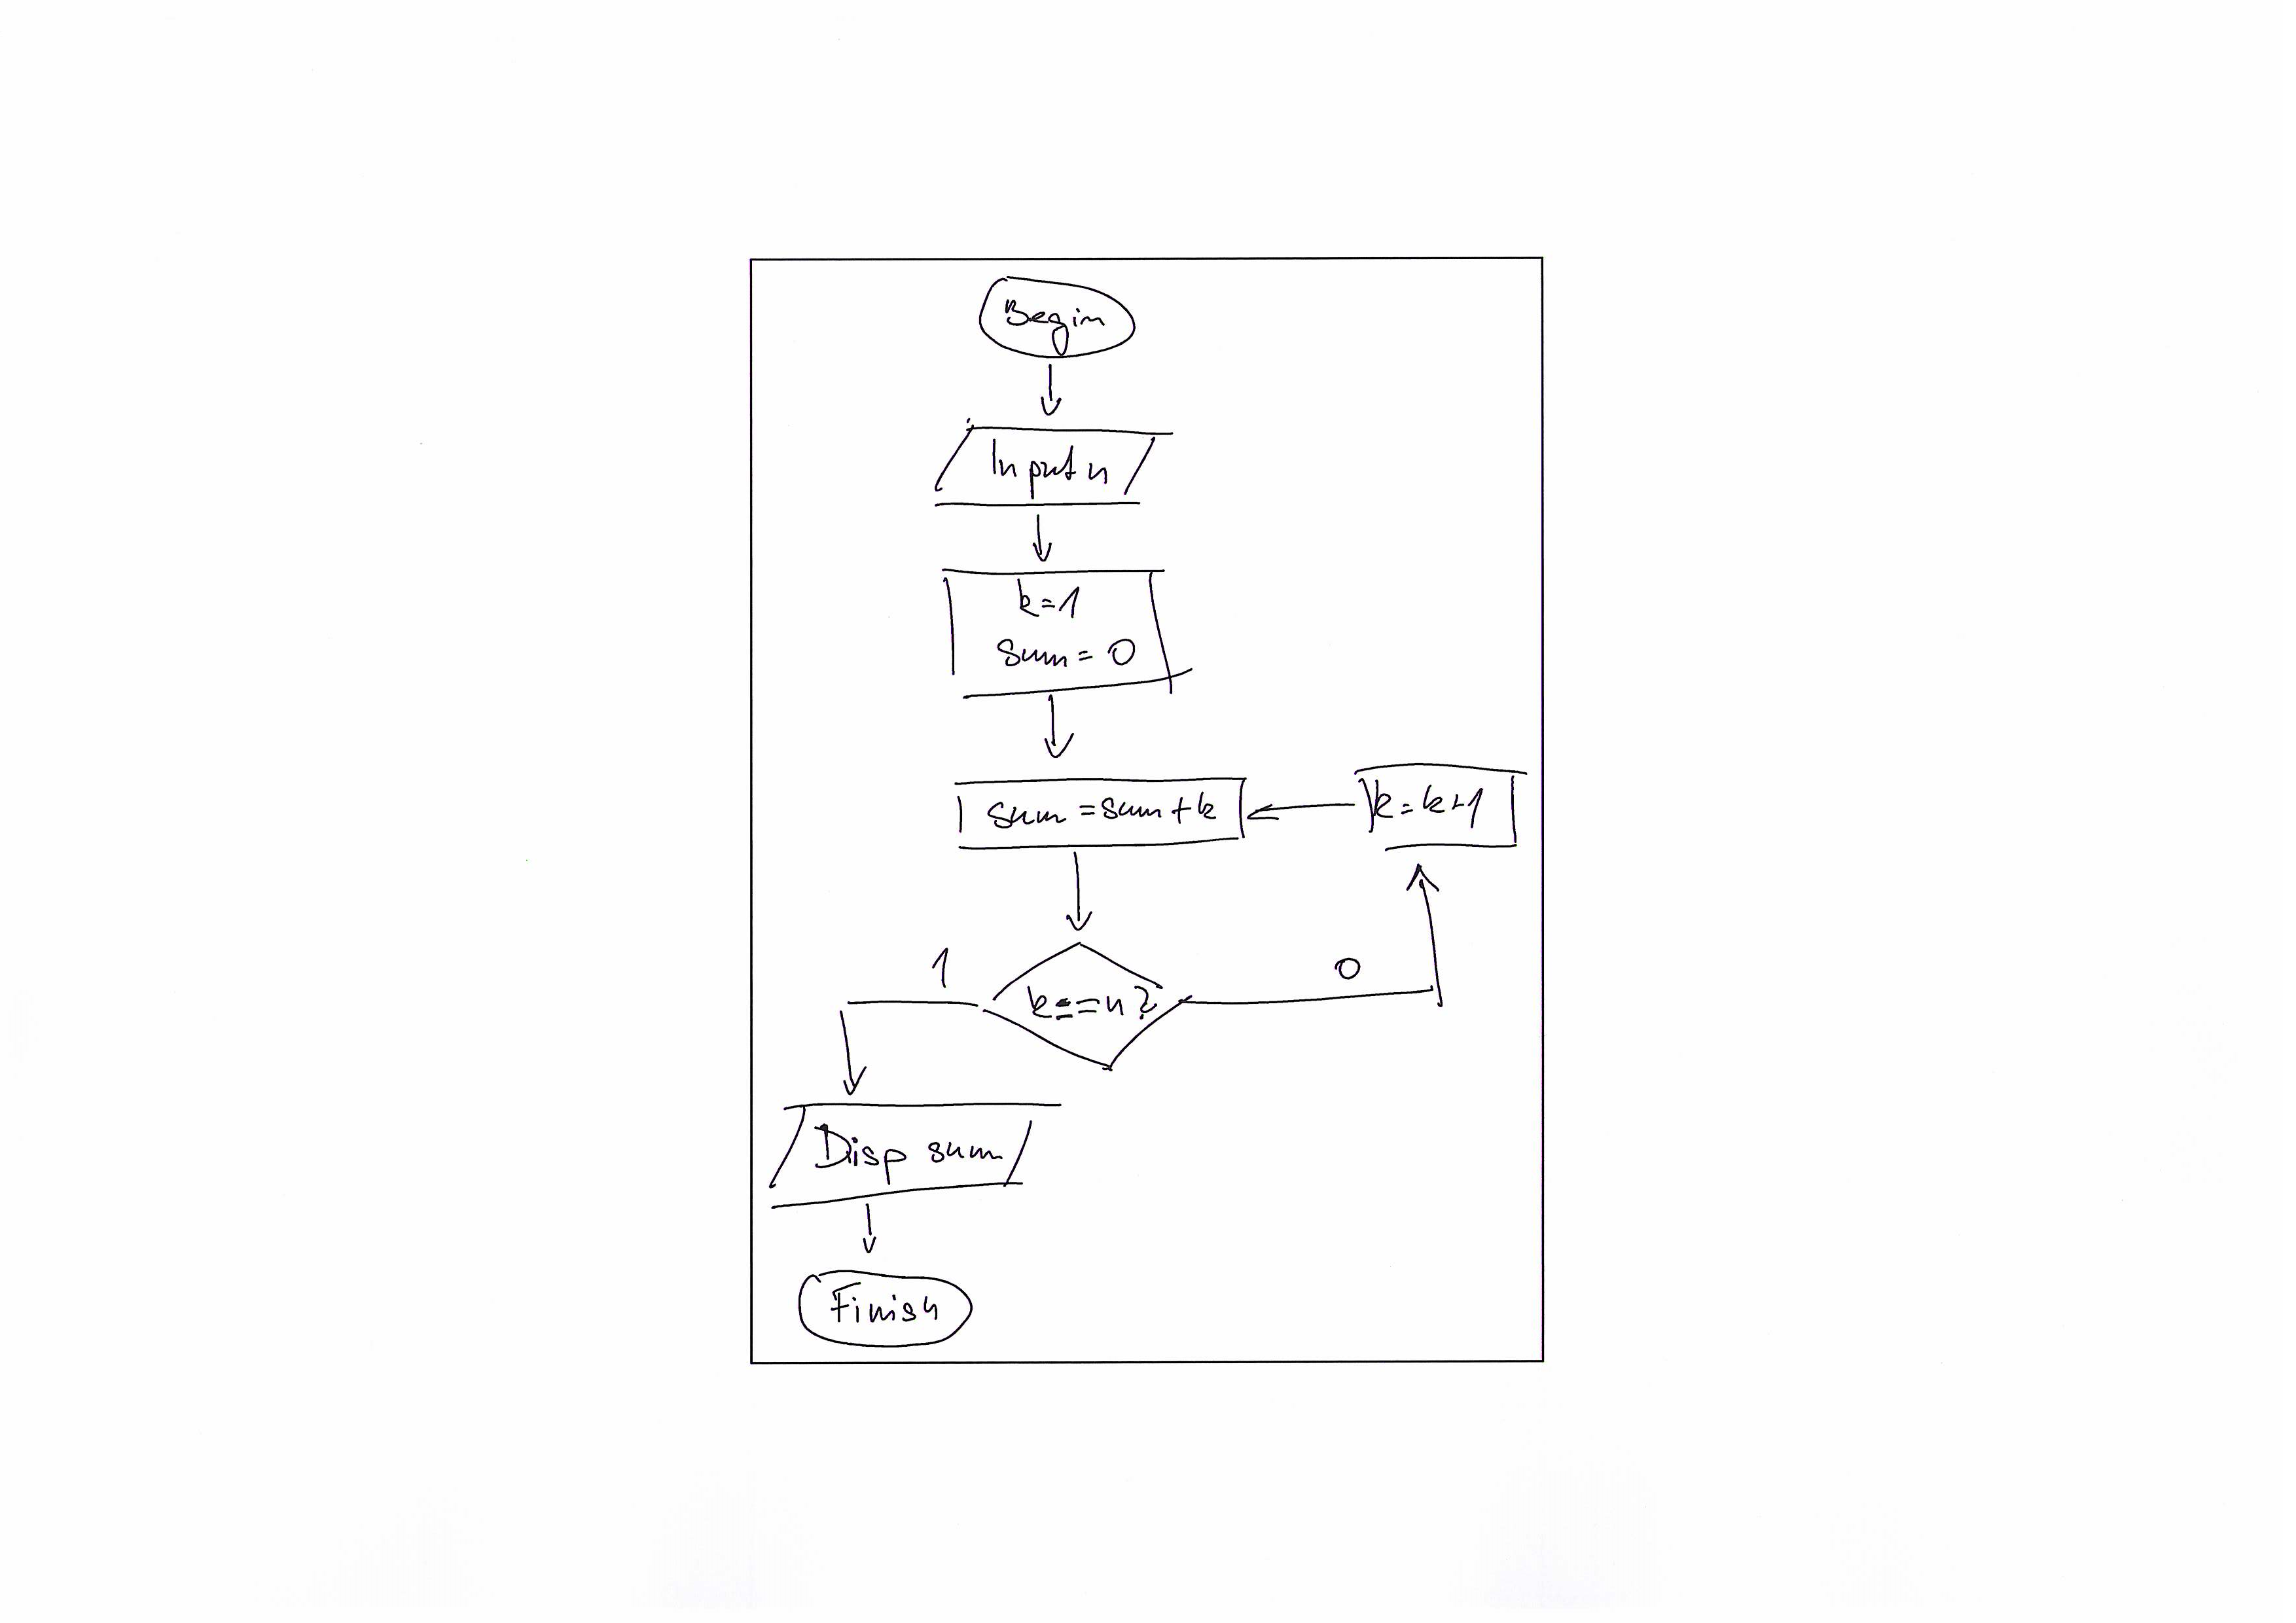 Begin
Input n
k=1
sum=0
sum=sum+k
k=k+1
1
0
k==n?
Disp sum
Finish